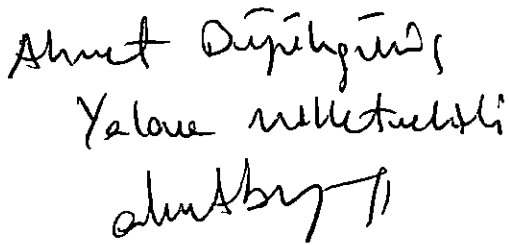 Ahmet Büyükgümüş
Yalova Milletvekili